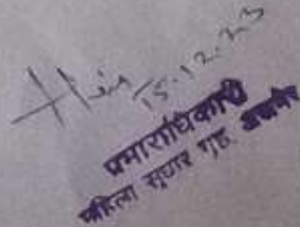 15.12.23
प्रभाराधिकारी
महिला सुधार गृह, अजमेर